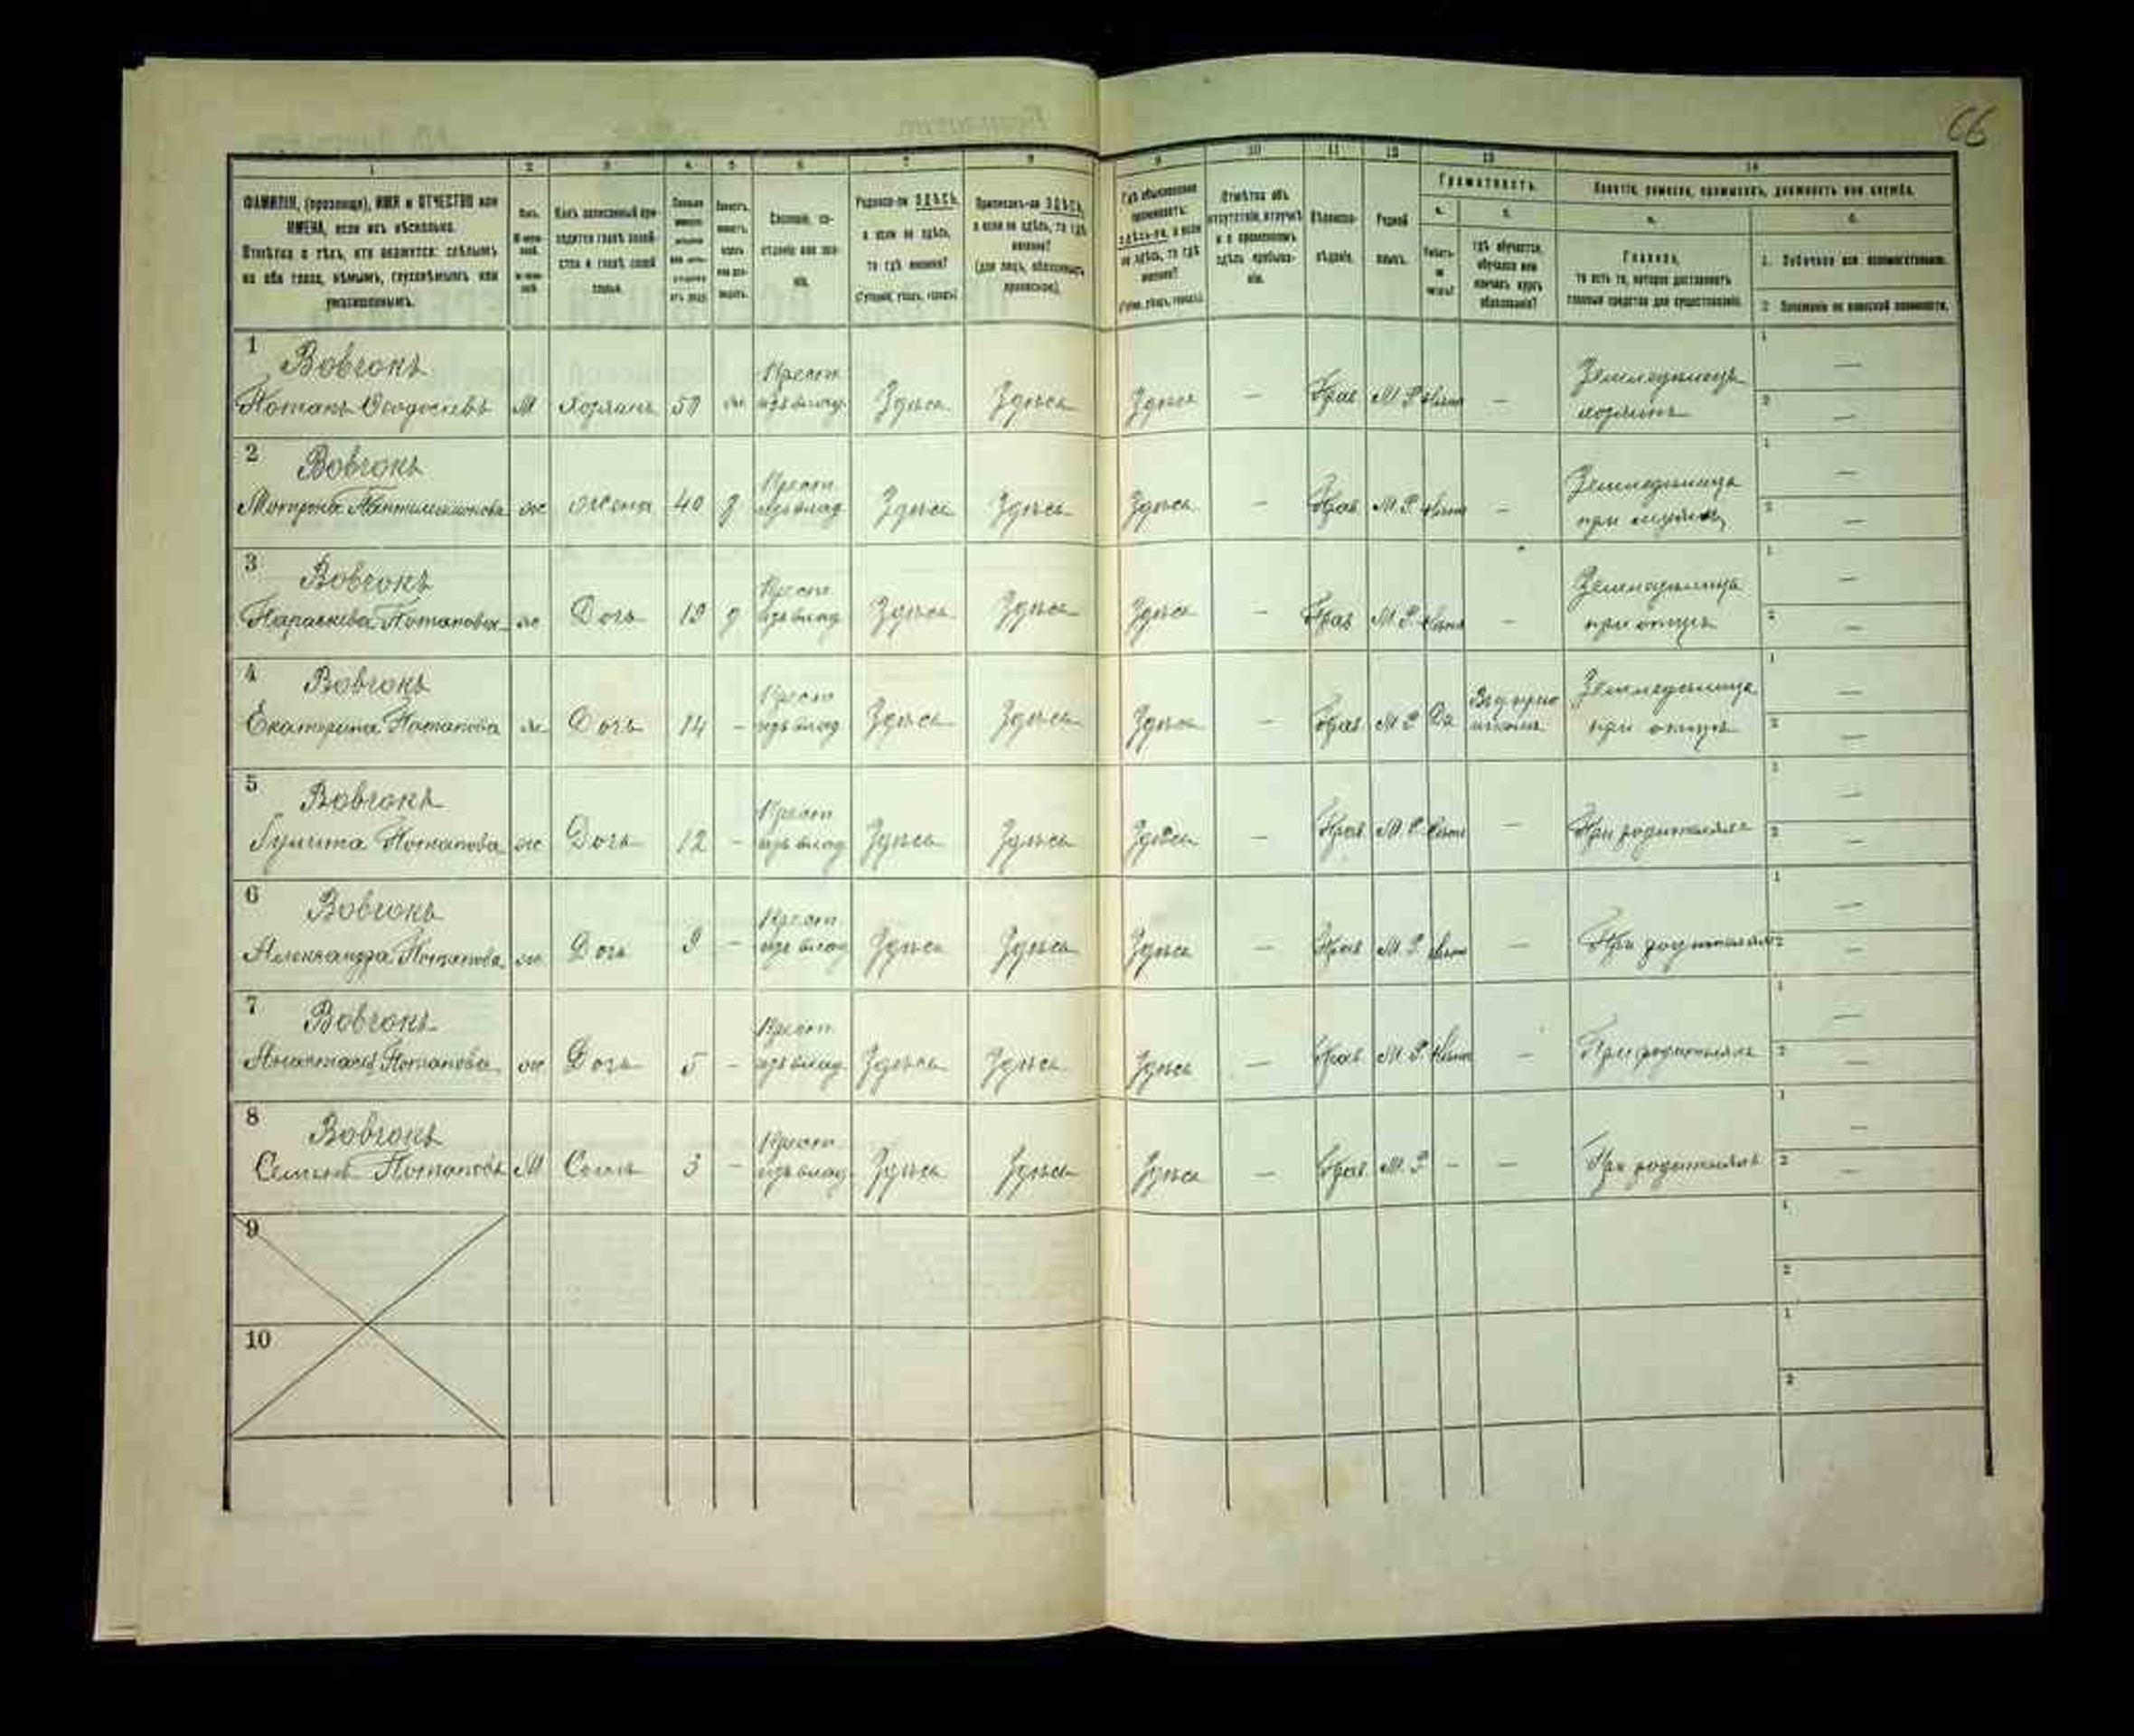 66
1 2 3 4 5 6 7 8 9 10 11 12 13 14
ФАМИЛІЯ, (прозвище), ИМЯ и ОТЧЕСТВО или
ИМЕНА, если ихъ нѣсколько.
Отмѣтка о тѣхъ, кто окажется: слѣпымъ
на оба глаза, нѣмымъ, глухонѣмымъ или
умалишеннымъ.
Какъ записанный при-
ходится главѣ хозяй-
ства и главѣ своей
семьи.
Сословіе, со-
стояніе или зва-
ніе.
Родился-ли ЗДѢСЬ,
а если не здѣсь,
то гдѣ именно?
(Губернія, уѣздъ, городъ)
Приписанъ-ли ЗДѢСЬ,
а если не здѣсь, то гдѣ
именно?
(для лицъ, обязанныхъ
припискою).
Гдѣ обыкновенно
проживаетъ:
здѣсь-ли, а если
не здѣсь, то гдѣ
именно?
(Губер., уѣздъ, городъ).
Отмѣтка объ
отсутствіи, отлучкѣ
и о временномъ
здѣсь пребыва-
ніи.
Вѣроиспо-
вѣданіе.
Родной
языкъ.
Грамотность.
а. б.
Умѣетъ-
ли
читать?
Гдѣ обучается,
обучался или
кончилъ курсъ
образованія?
Занятіе, ремесло, промыселъ, должность или служба.
а. б.
Главное,
то есть то, которое доставляетъ
главныя средства для существованія.
1. Побочное или вспомогательное.
2. Положеніе по воинской повинности.
1 Вовчокъ
Потапъ Ѳеодосіевъ М Хозяинъ 50 ж Крест. изъ влад. Здѣсь Здѣсь Здѣсь — Прав М Р Нѣтъ — Земледѣлецъ
хозяинъ
2 Вовчокъ
Мотрона Пантилимонова ж Жена 40 з Крест. изъ влад Здѣсь Здѣсь Здѣсь — Прав М.Р. Нѣтъ — Земледѣлица
при мужѣ
3 Вовчокъ
Параскева Потапова ж Дочь 19 Крест. изъ влад Здѣсь Здѣсь Здѣсь — Прав М.Р. Нѣтъ — Земледѣлица
при отцѣ
4 Вовчокъ
Екатерина Потапова ж Дочь 14 — Крест изъ влад Здѣсь Здѣсь Здѣсь — Прав М Р Да школѣ Земледѣлица
при отцѣ
5 Вовчокъ
Потапова ж Дочь 12 — Крест изъ влад Здѣсь Здѣсь Здѣсь — Прав М.Р. Нѣтъ — При родителяхъ
6 Вовчокъ
Александра Потапова ж Дочь 9 — Крест. изъ влад Здѣсь Здѣсь Здѣсь — Прав М.Р. Нѣтъ — При родителяхъ
7 Вовчокъ
Анастасія Потапова ж Дочь 5 — Крест изъ влад Здѣсь Здѣсь Здѣсь — Прав М.Р. Нѣтъ — При родителяхъ
8 Вовчокъ
Семенъ Потаповъ М Сынъ 3 — Крест изъ влад Здѣсь Здѣсь Здѣсь — Прав М.Р. — — При родителяхъ
9
10